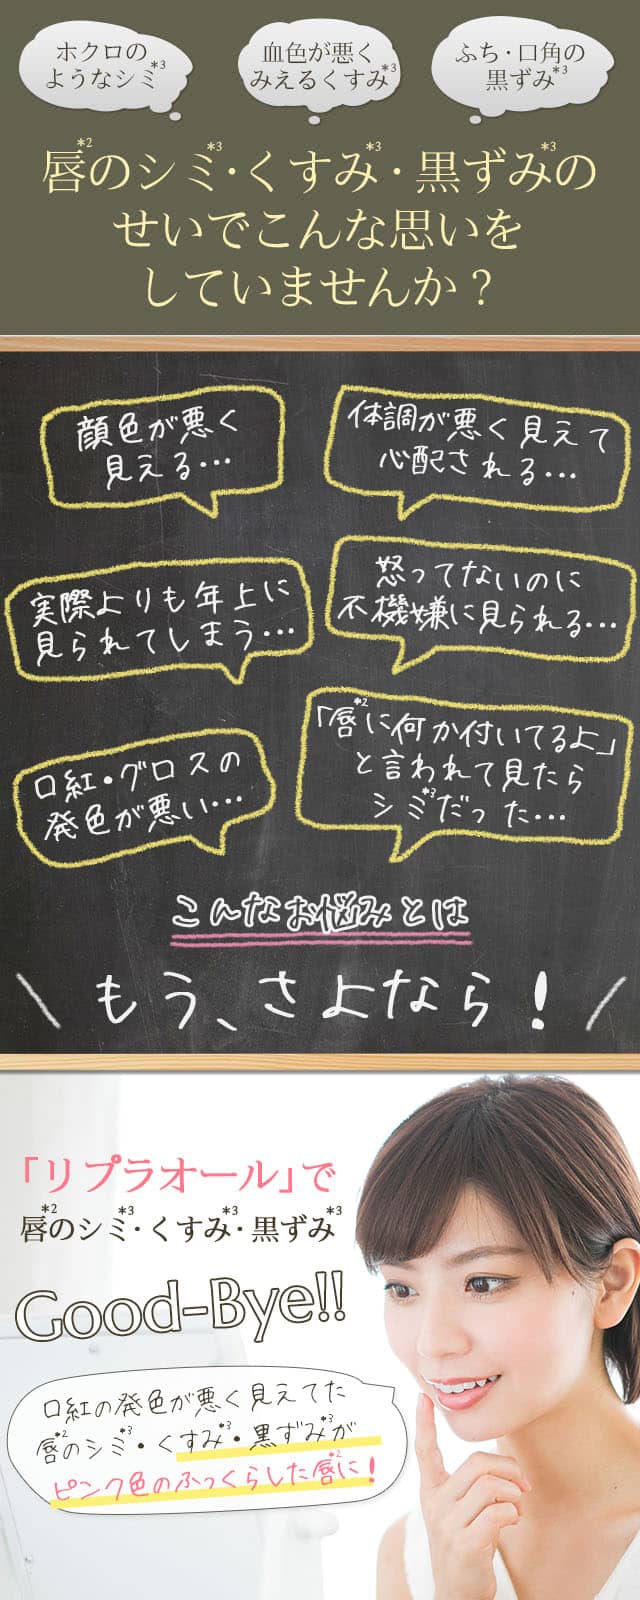 ホクロの
ようなシミ*3
血色が悪く
みえるくすみ*3
ふち・口角の
黒ずみ*3
唇*2のシミ*3・くすみ*3・黒ずみ*3の
せいでこんな思いを
していませんか？
顔色が悪く
見える…
体調が悪く見えて
心配される…
実際よりも年上に
見られてしまう…
怒ってないのに
不機嫌に見られる…
口紅・グロスの
発色が悪い…
「唇*2に何か付いてるよ」
と言われて見たら
シミ*3だった…
こんなお悩みとは
\ もう、さよなら！ /
「リプラオール」で
唇*2のシミ*3・くすみ*3・黒ずみ*3
Good-Bye!!
口紅の発色が悪く見えてた
唇*2のシミ*3・くすみ*3・黒ずみ*3が
ピンク色のふっくらした唇*2に！